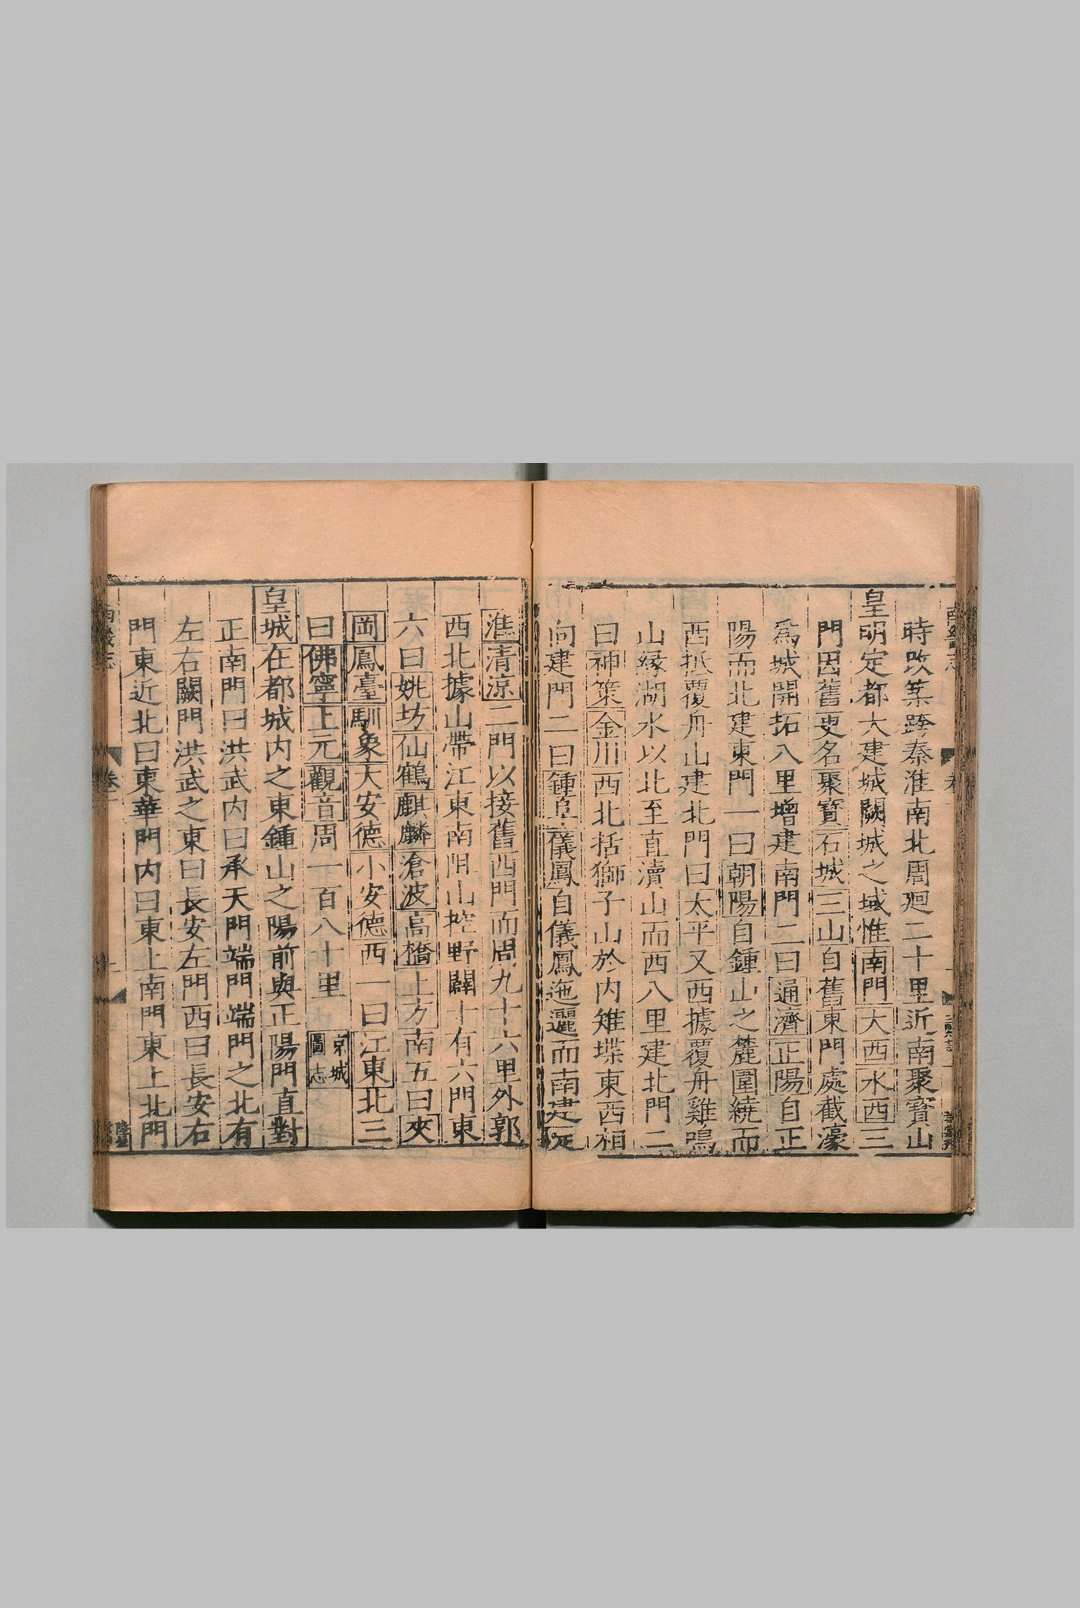 時吹某跨秦淮南北周廻二十里近南聚寶山
皇明定都大建城闕城之域惟南門大西水西三
門因舊更名聚寶石城三山自舊東門處截濠
爲城開拓八里增建南門二曰通濟正陽自正
陽而北建東門一曰朝陽自鍾山之麓圍繞而
西抵覆舟山建北門曰太平又西據覆舟雞鳴
山緣湖水以北至直瀆山而西八里建北門二
曰神策金川西北括獅子山於內雉堞東西相
向建門二曰鍾阜儀鳳自儀鳳迤邐而南建定
淮清凉二門以接舊西門而周九十六里外郭
西北據山帶江東南阻山控野闢十有六門東
六曰姚坊仙鶴麒麟滄波高橋上方南五曰夾
岡鳳臺馴象大安德小安德西一曰江東北三
曰佛寧上元觀音周一百八十里
京城
圖志
皇城在都城內之東鍾山之陽前與正陽門直對
正南門曰洪武內曰承天門端門端門之北有
左右闕門洪武之東曰長安左門西曰長安右
門東近北曰東華門內曰東上南門東上北門
卷一